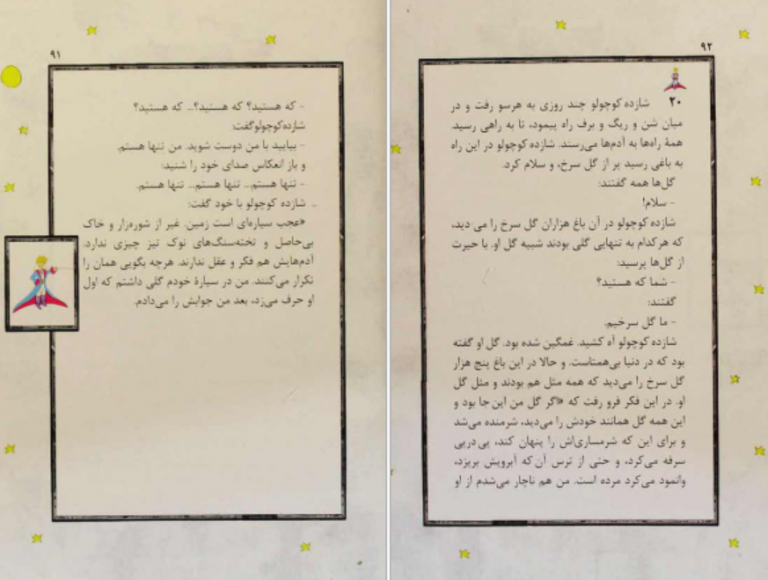 ۹۱
- که هستید؟ که هستید؟... که هستید؟
شازده‌کوچولوگفت:
- بیایید با من دوست شوید. من تنها هستم.
و باز انعکاس صدای خود را شنید:
- تنها هستم... تنها هستم... تنها هستم.
شازده کوچولو با خود گفت:
«عجب سیاره‌ای است زمین. غیر از شوره‌زار و خاک
بی‌حاصل و تخته‌سنگ‌های نوک تیز چیزی ندارد.
آدم‌هایش هم فکر و عقل ندارند. هرچه بگویی همان را
تکرار می‌کنند. من در سیارهٔ خودم گلی داشتم که اول
او حرف می‌زد، بعد من جوابش را می‌دادم.
۹۲
۲۰ شازده کوچولو چند روزی به هرسو رفت و در
میان شن و ریگ و برف راه پیمود، تا به راهی رسید.
همهٔ راه‌ها به آدم‌ها می‌رسند. شازده کوچولو در این راه
به باغی رسید پر از گل سرخ، و سلام کرد.
گل‌ها همه گفتند:
- سلام!
شازده کوچولو در آن باغ هزاران گل سرخ را می‌دید،
که هرکدام به تنهایی گلی بودند شبیه گل او. با حیرت
از گل‌ها پرسید:
- شما که هستید؟
گفتند:
- ما گل سرخیم.
شازده کوچولو آه کشید. غمگین شده بود. گل او گفته
بود که در دنیا بی‌همتاست. و حالا در این باغ پنج هزار
گل سرخ را می‌دید که همه مثل هم بودند و مثل گل
او. در این فکر فرو رفت که «اگر گل من این جا بود و
این همه گل همانند خودش را می‌دید، شرمنده می‌شد
و برای این که شرمساری‌اش را پنهان کند، پی‌درپی
سرفه می‌کرد، و حتی از ترس آن که آبرویش بریزد،
وانمود می‌کرد مرده است. من هم ناچار می‌شدم از او